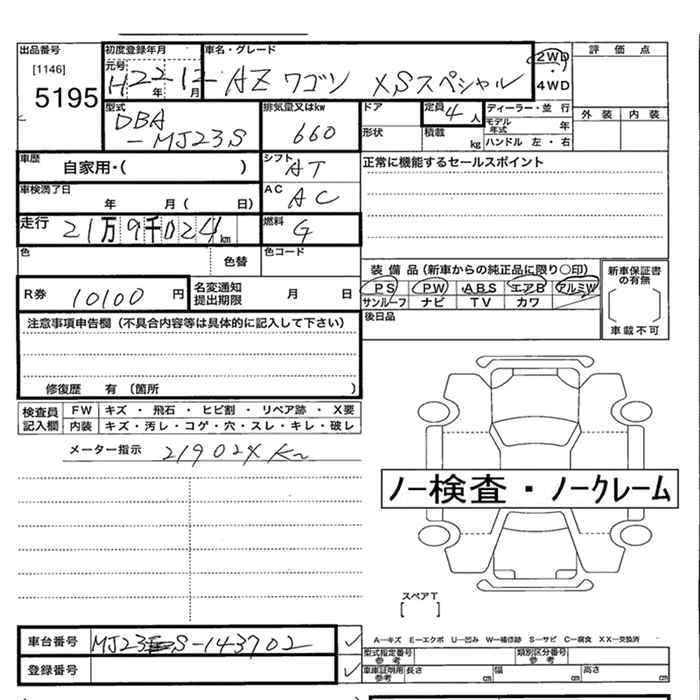 出品番号
[1146]
5195
初度登録年月
元号
H22年12月
車名・グレード
AZワゴン XSスペシャル
2WD
・
4WD
評価点
外装 内装
型式
DBA
-MJ23S
排気量又はkw
660
ドア
形状
定員 4人
積載 kg
ディーラー・並行
モデル年式 年
ハンドル 左・右
車歴
自家用・( )
シフト
AT
正常に機能するセールスポイント
車検満了日
年 月( 日)
AC
AC
走行 21万9千024km
燃料
G
色
色替
色コード
R券 10100円
名変通知
提出期限
月 日
装備品(新車からの純正品に限り○印)
PS PW ABS エアB アルミW
サンルーフ ナビ TV カワ
後日品
新車保証書
の有無
車載不可
注意事項申告欄(不具合内容等は具体的に記入して下さい)
修復歴 有(箇所 )
検査員
記入欄
FW キズ・飛石・ヒビ割・リペア跡・X要
内装 キズ・汚レ・コゲ・穴・スレ・キレ・破レ
メーター指示 21902XK
ノー検査・ノークレーム
スペアT
[ ]
車台番号 MJ23S-143702
登録番号
A-キズ E-エクボ U-凹み W-補修跡 S-サビ C-腐食 XX-交換済
型式指定番号
参考
類別区分番号
参考
車庫証明用
参考
長さ cm 幅 cm 高さ cm